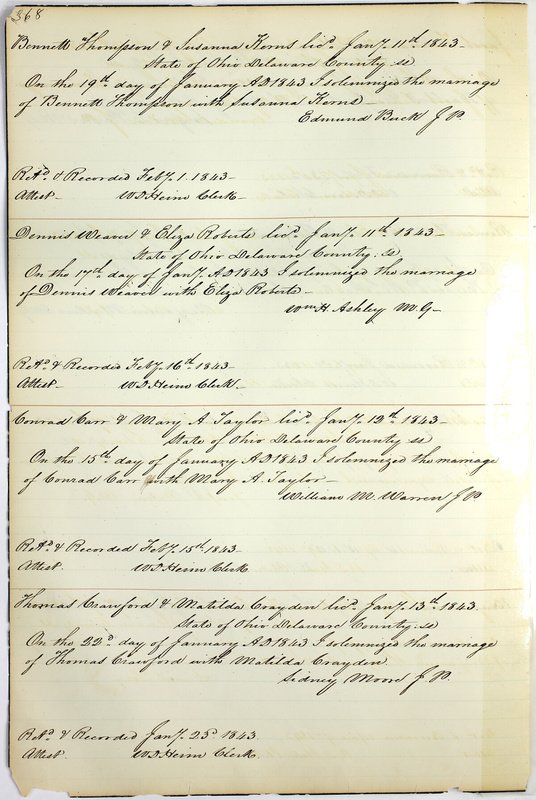 368
Bennett Thompson & Susanna Kerns licd. Jany. 11th 1843–
State of Ohio Delaware County ss
On the 19th day of January AD 1843 I solemnized the marriage
of Bennett Thompson with Susanna Kerns–
Edmund Buck J P.
Retd. & Recorded Feby. 1. 1843–
Attest W D Heim Clerk–
Dennis Weaver & Eliza Roberts licd. Jany. 11th 1843–
State of Ohio Delaware County: ss
On the 17th day of Jany. AD 1843 I solemnized the marriage
of Dennis Weaver with Eliza Roberts–
Wm H. Ashley M. G–
Retd. & Recorded Feby. 16th 1843–
Attest– W D Heim Clerk–
Conrad Carr & Mary A. Taylor licd. Jany. 12th 1843–
State of Ohio Delaware County ss
On the 15th day of January AD 1843 I solemnized the marriage
of Conrad Carr with Mary A. Taylor–
William M. Warren J P
Retd. & Recorded Feby. 15th 1843–
Attest. W D Heim Clerk
Thomas Crawford & Matilda Crayden licd. Jany. 13th 1843.
State of Ohio Delaware County: ss
On the 22d. day of January AD 1843 I solemnized the marriage
of Thomas Crawford with Matilda Crayden.
Sidney Moore J. P.
Retd. & Recorded Jany. 25d. 1843.
Attest. W D Heim Clerk.